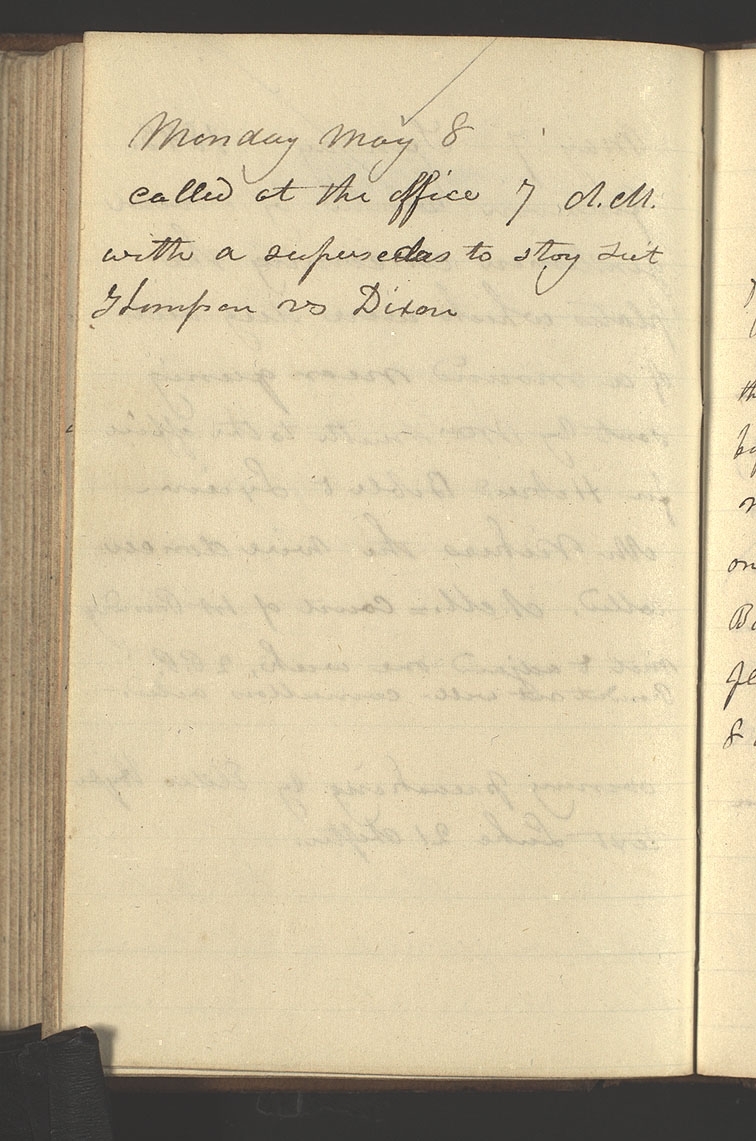 Monday May 8
called at the office 7 A.M.
with a supersedas to stay suit
Thompson vs Dixon
th
on
8